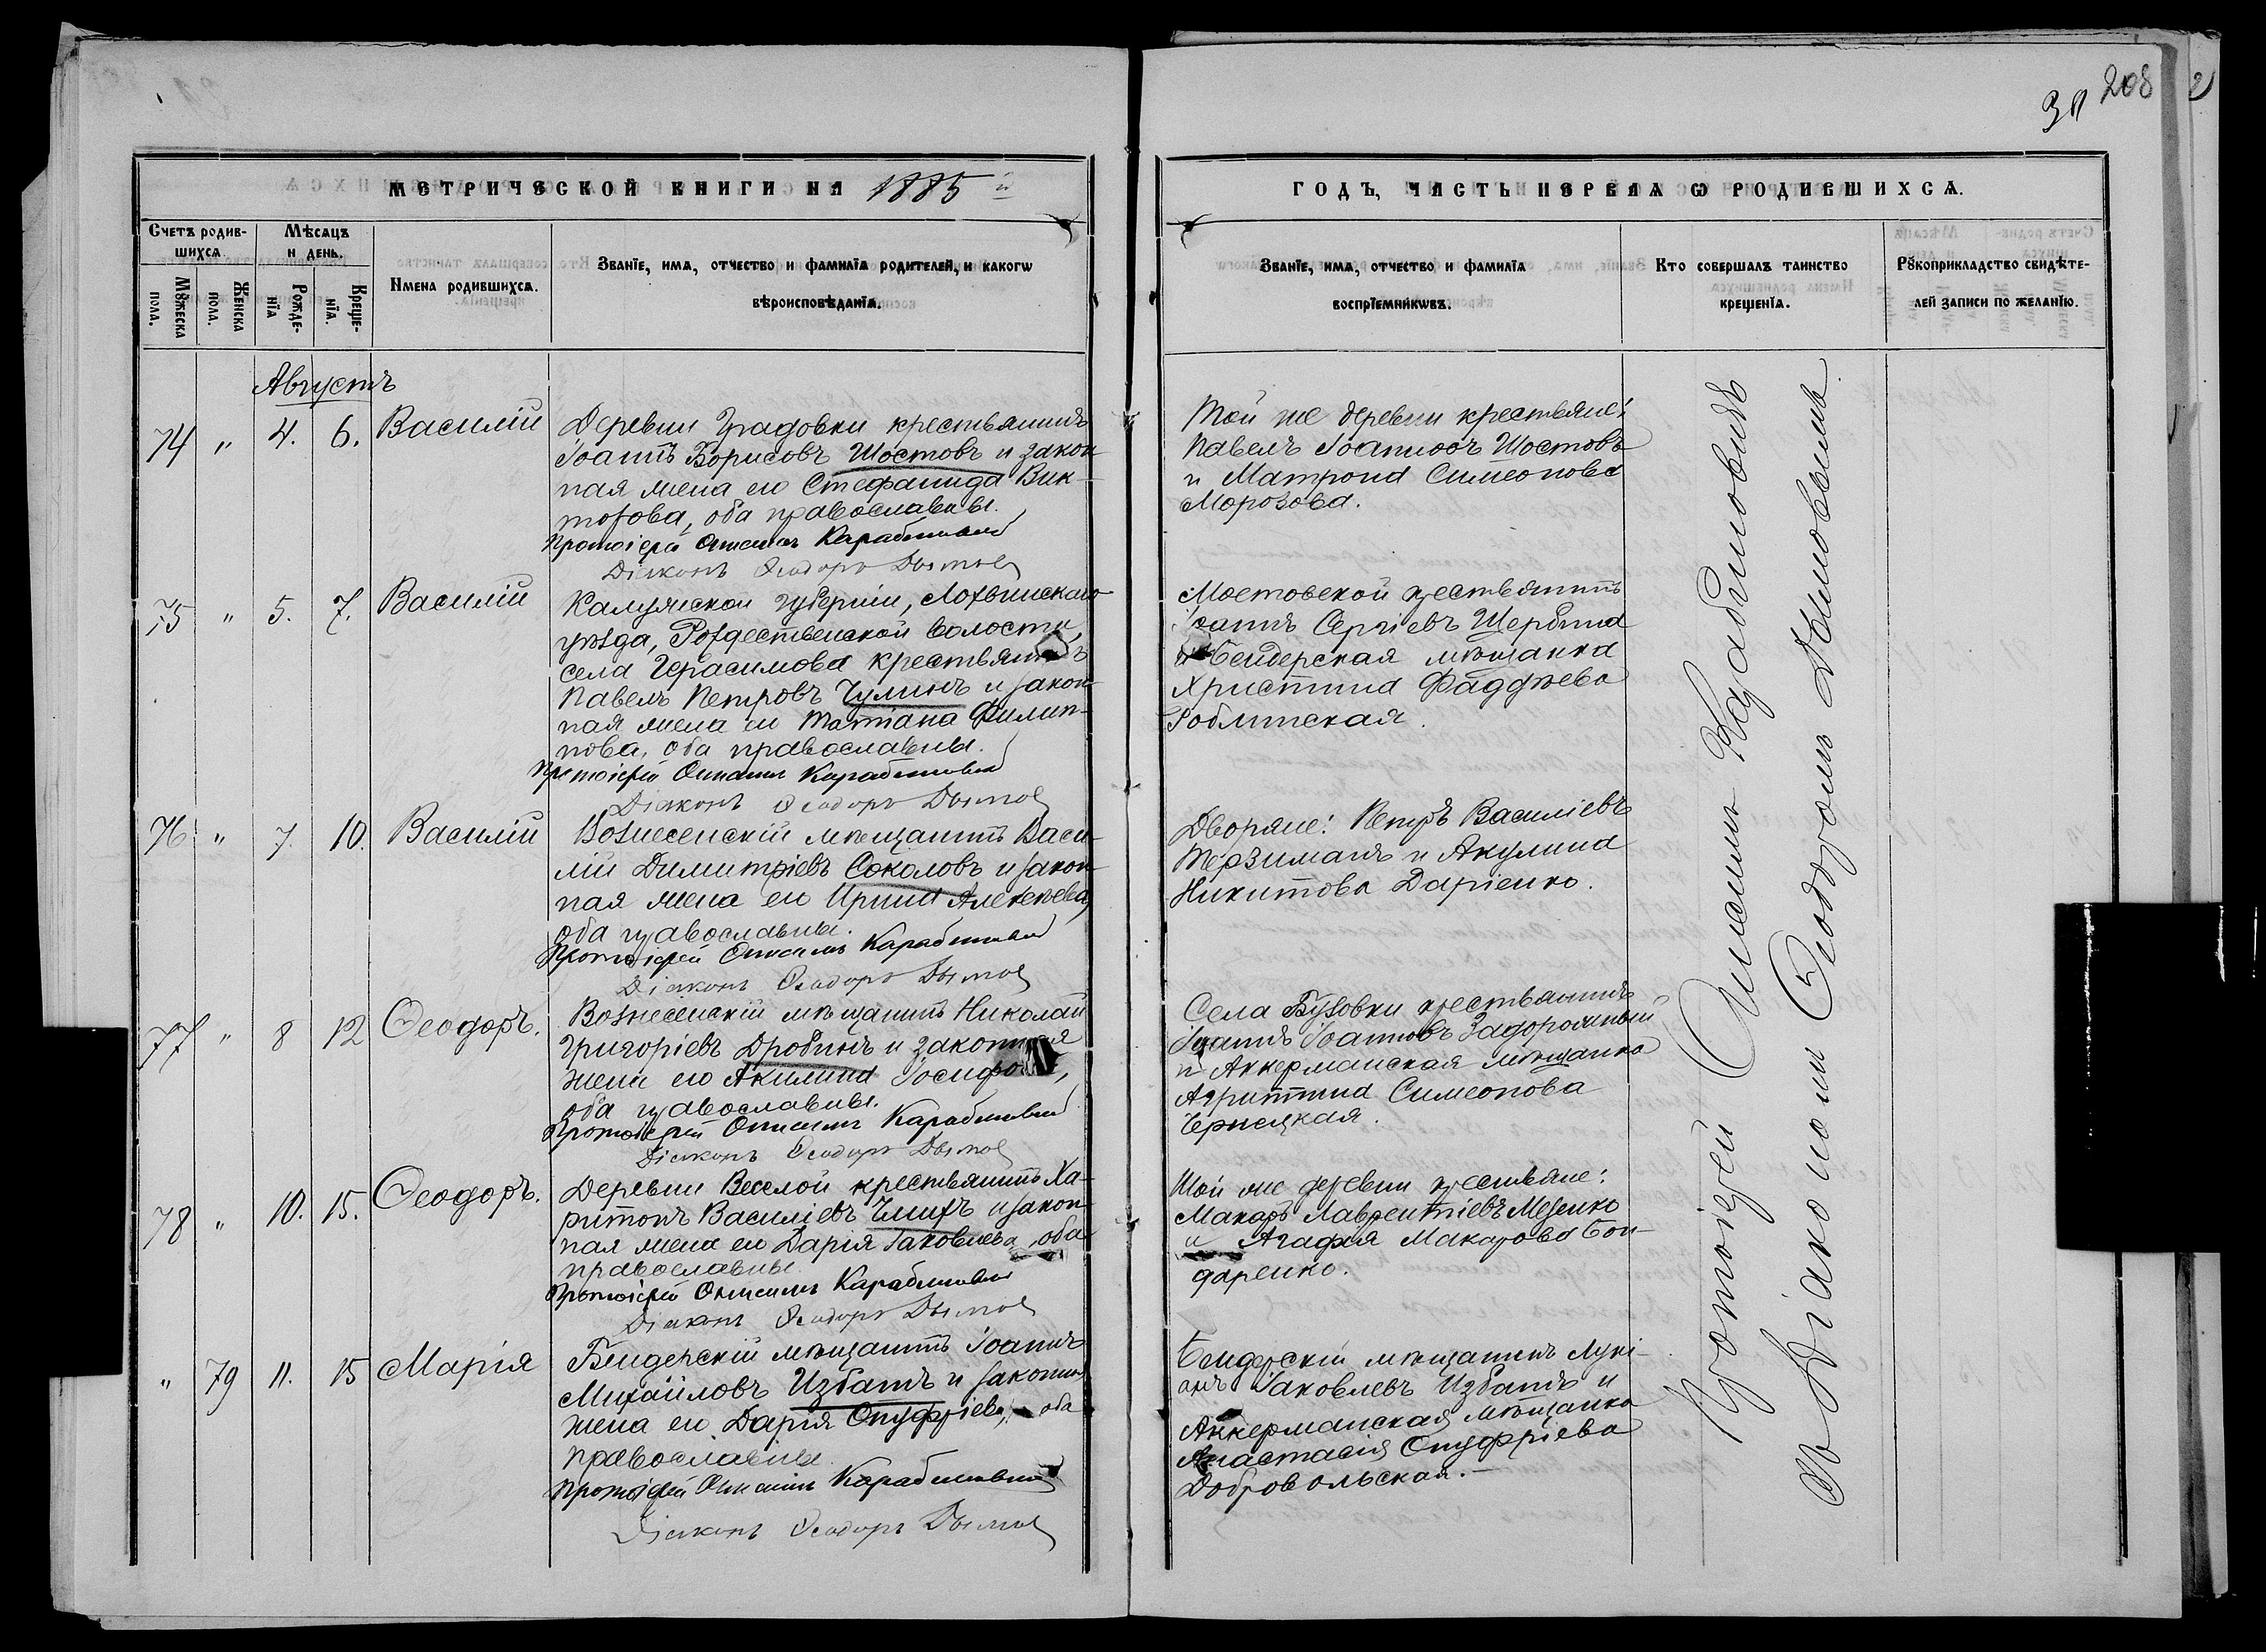 30 208
МЕТРИЧЕСКОЙ КНИГИ НА 1885й
ГОДЪ, ЧАСТЬ ПЕРВАѦ Ѡ РОДИВШИХСѦ.
Счетъ родив-
шихсѧ.
Мѣсѧцъ
и день.
Мꙋжеска
пола.
Женска
пола.
Рожде-
нїѧ
Креще-
нїѧ.
Имена родившихсѧ.
Званїе, имѧ, отчество и фамилїѧ родителей, и какогѡ
вѣроисповѣданїѧ.
Званїе, имѧ, отчество и фамилїѧ
воспрїемникѡвъ.
Кто совершалъ таинство
крещенїѧ.
Рꙋкоприкладство свидѣте-
лей записи по желанїю.
Августъ
74 " 4. 6. Василій
Деревни Градовки крестьянинъ
Іоаннъ Борисовъ Шостовъ и закон
ная жена его Стефанида Вик-
торова, оба православны.
Протоіерей Онисимъ
Діаконъ Ѳеодоръ Дымов
Той же деревни крестьяне:
Павелъ Іоанновъ Шостовъ
и Матрона Симеонова
Морозова.
75 " 5. 7. Василій
Калужской губерніи, Лохвинскаго
уѣзда, Рождественской волости,
села Герасимова крестьянинъ
Павелъ Петровъ Чулинъ и закон-
ная жена его Татіана Филип-
пова, оба православны.
Протоіерей Онисимъ
Діаконъ Ѳеодоръ Дымов
Мостовской крестьянинъ
Іоаннъ Сергіевъ Щербина
и Бендерская мѣщанка
Христина Фаддѣева
76 " 7. 10. Василій
Вознесенскій мѣщанинъ Васи-
лій Димитріевъ Соколовъ и закон-
ная жена его Ирина Алексѣева,
оба православны.
Протоіерей Онисимъ
Діаконъ Ѳеодоръ Дымов
Дворяне: Петръ Василіевъ
Терзиманъ и Акулина
Никитова Даріенко.
77 " 8 12 Ѳеодоръ.
Вознесенскій мѣщанинъ Николай
Григоріевъ Дробинъ и законная
жена его Акилина Іосифова,
оба православны.
Протоіерей Онисимъ
Діаконъ Ѳеодоръ Дымов
Села Бузовки крестьянинъ
Іоаннъ Іоанновъ Задорожный
и Аккерманская мѣщанка
Агриппина Симеонова
Чернецкая.
78 " 10. 15. Ѳеодоръ.
Деревни Веселой крестьянинъ Ха-
ритонъ Василіевъ Чмихъ и закон-
ная жена его Дарія Іаковлева, оба
православны.
Протоіерей Онисимъ
Діаконъ Ѳеодоръ Дымов
Той же деревни крестьяне:
Макаръ Лаврентіевъ Мезенко
и Агафія Макарова Бон-
даренко.
" 79 11. 15 Марія
Бендерскій мѣщанинъ Іоаннъ
Михайловъ Избашъ и законная
жена его Дарія Онуфріева, оба
православны.
Протоіерей Онисимъ
Діаконъ Ѳеодоръ Дымов
Бендерскій мѣщанинъ Лукі-
анъ Іаковлевъ Избашъ и
Аккерманская мѣщанка
Анастасія Онуфріева
Добровольская.
Протоіерей Онисимъ
съ Діакономъ Ѳеодоромъ Дымовымъ.